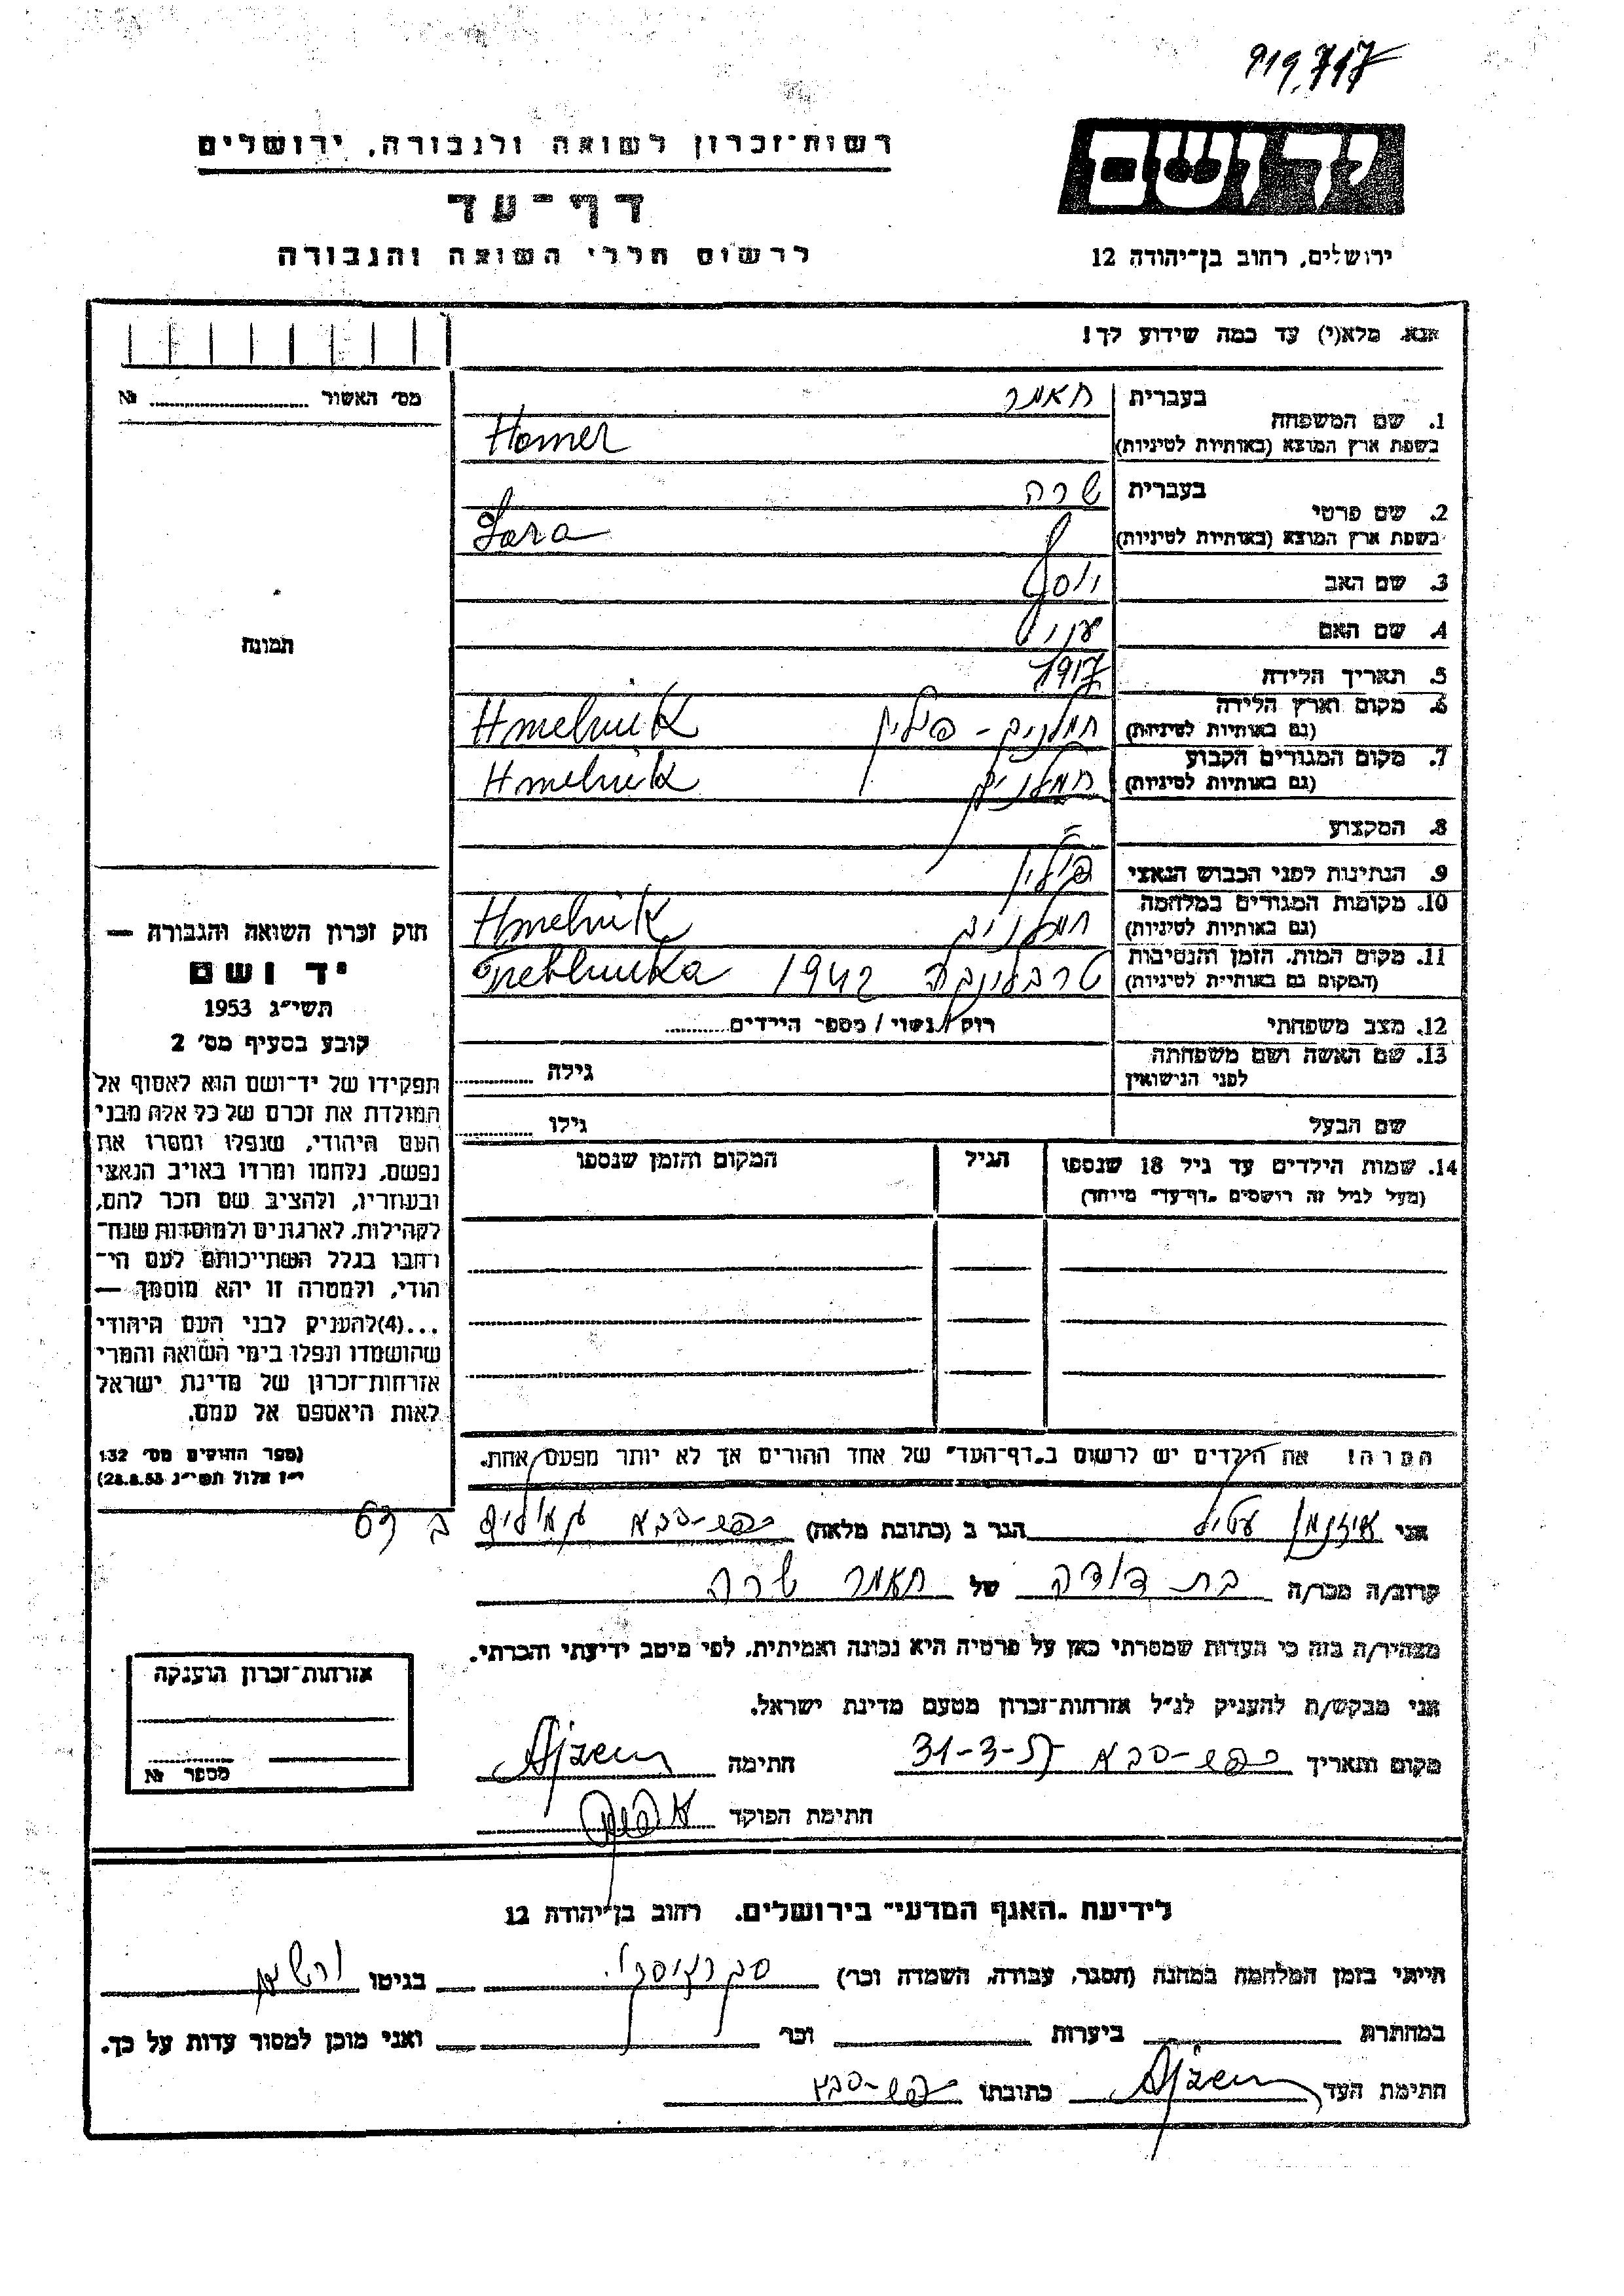 919,717
רשות־זכרון לשואה ולגבורה, ירושלים
יד ושם
דף־עד
לרשום חללי השואה והגבורה
ירושלים, רחוב בן־יהודה 12
אנא מלא(י) עד כמה שידוע לך!
מס׳ האשור ........ №
תמונה
1. שם המשפחה
בעברית חאמר
בשפת ארץ המוצא (באותיות לטיניות) Homer
2. שם פרטי
בעברית שרה
בשפת ארץ המוצא (באותיות לטיניות) Sara
3. שם האב יוסף
4. שם האם
5. תאריך הלידה 1917
6. מקום וארץ הלידה (גם באותיות לטיניות) חמלניק - פולין Hmelnik
7. מקום המגורים הקבוע (גם באותיות לטיניות) חמלניק Hmelnik
8. המקצוע
9. הנתינות לפני הכבוש הנאצי פולין
10. מקומות המגורים במלחמה (גם באותיות לטיניות) חמלניק Hmelnik
11. מקום המות, הזמן והנסיבות (המקום גם באותיית לטיניות) טרבלינקה 1942 Treblinka
12. מצב משפחתי רוק / נשוי / מספר הילדים........
13. שם האשה ושם משפחתה לפני הנישואין גילה ........
שם הבעל גילו ........
14. שמות הילדים עד גיל 18 שנספו הגיל המקום והזמן שנספו
(מעל לגיל זה רושמים „דף־עד״ מיוחד)
הערה! את הילדים יש לרשום ב„דף־העד״ של אחד ההורים אך לא יותר מפעם אחת.
חוק זכרון השואה והגבורה —
יד ושם
תשי״ג 1953
קובע בסעיף מס׳ 2
תפקידו של יד־ושם הוא לאסוף אל
המולדת את זכרם של כל אלה מבני
העם היהודי, שנפלו ומסרו את
נפשם, נלחמו ומרדו באויב הנאצי
ובעוזריו, ולהציב שם וזכר להם,
לקהילות, לארגונים ולמוסדות שנח־
רחבו בגלל השתייכותם לעם הי־
הודי, ולמטרה זו יהא מוסמך —
...(4)להעניק לבני העם היהודי
שהושמדו ונפלו בימי השואה והמרי
אזרחות־זכרון של מדינת ישראל
לאות היאספם אל עמם.
(ספר החוקים מס׳ 132
י״ז אלול תשי״ג 28.8.53)
אני איזנמן הגר ב (כתובת מלאה) כפר-סבא
קרוב/ה מכר/ה בת דודה של חאמר שרה
מצהיר/ה בזה כי העדות שמסרתי כאן על פרטיה היא נכונה ואמיתית, לפי מיטב ידיעתי והכרתי.
אני מבקש/ת להעניק לנ״ל אזרחות־זכרון מטעם מדינת ישראל.
מקום ותאריך כפר-סבא 31-3-57 חתימה Ajzen
חתימת הפוקד
אזרחות־זכרון הוענקה
מספר №
לידיעת „האגף המדעי״ בירושלים, רחוב בן־יהודה 12
הייתי בזמן המלחמה במחנה (הסגר, עבודה, השמדה וכו׳) בגיטו ורשא
במחתרת ביערות וכו׳ ואני מוכן למסור עדות על כך.
חתימת העד Ajzen כתובתו כפר-סבא